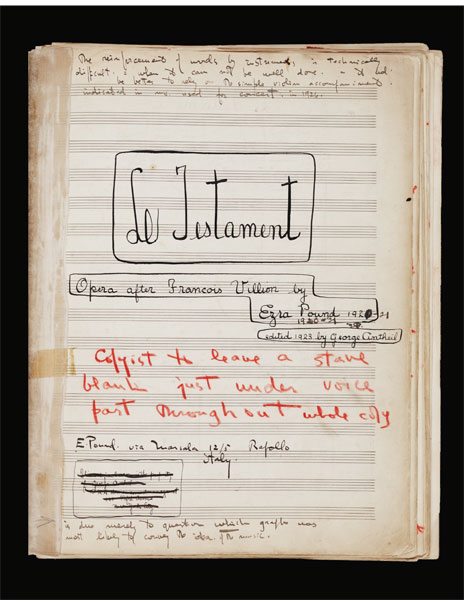 The reinforcement of words by instruments is technically
difficult. & when it can not be well done. it had
be better to rely on the simple violin accompaniment
indicated in ms. used for concert. in 1926.
Le Testament
Opera after Francois Villion by
Ezra Pound 1920-21
1920-21
edited 1923 by George Antheil
Copyist to leave a stave
blank just under voice
part throughout whole copy
E. Pound. via Marsala 12/5 Rapallo
Italy.
is due merely to question which graph was
most likely to convey the idea of the music.